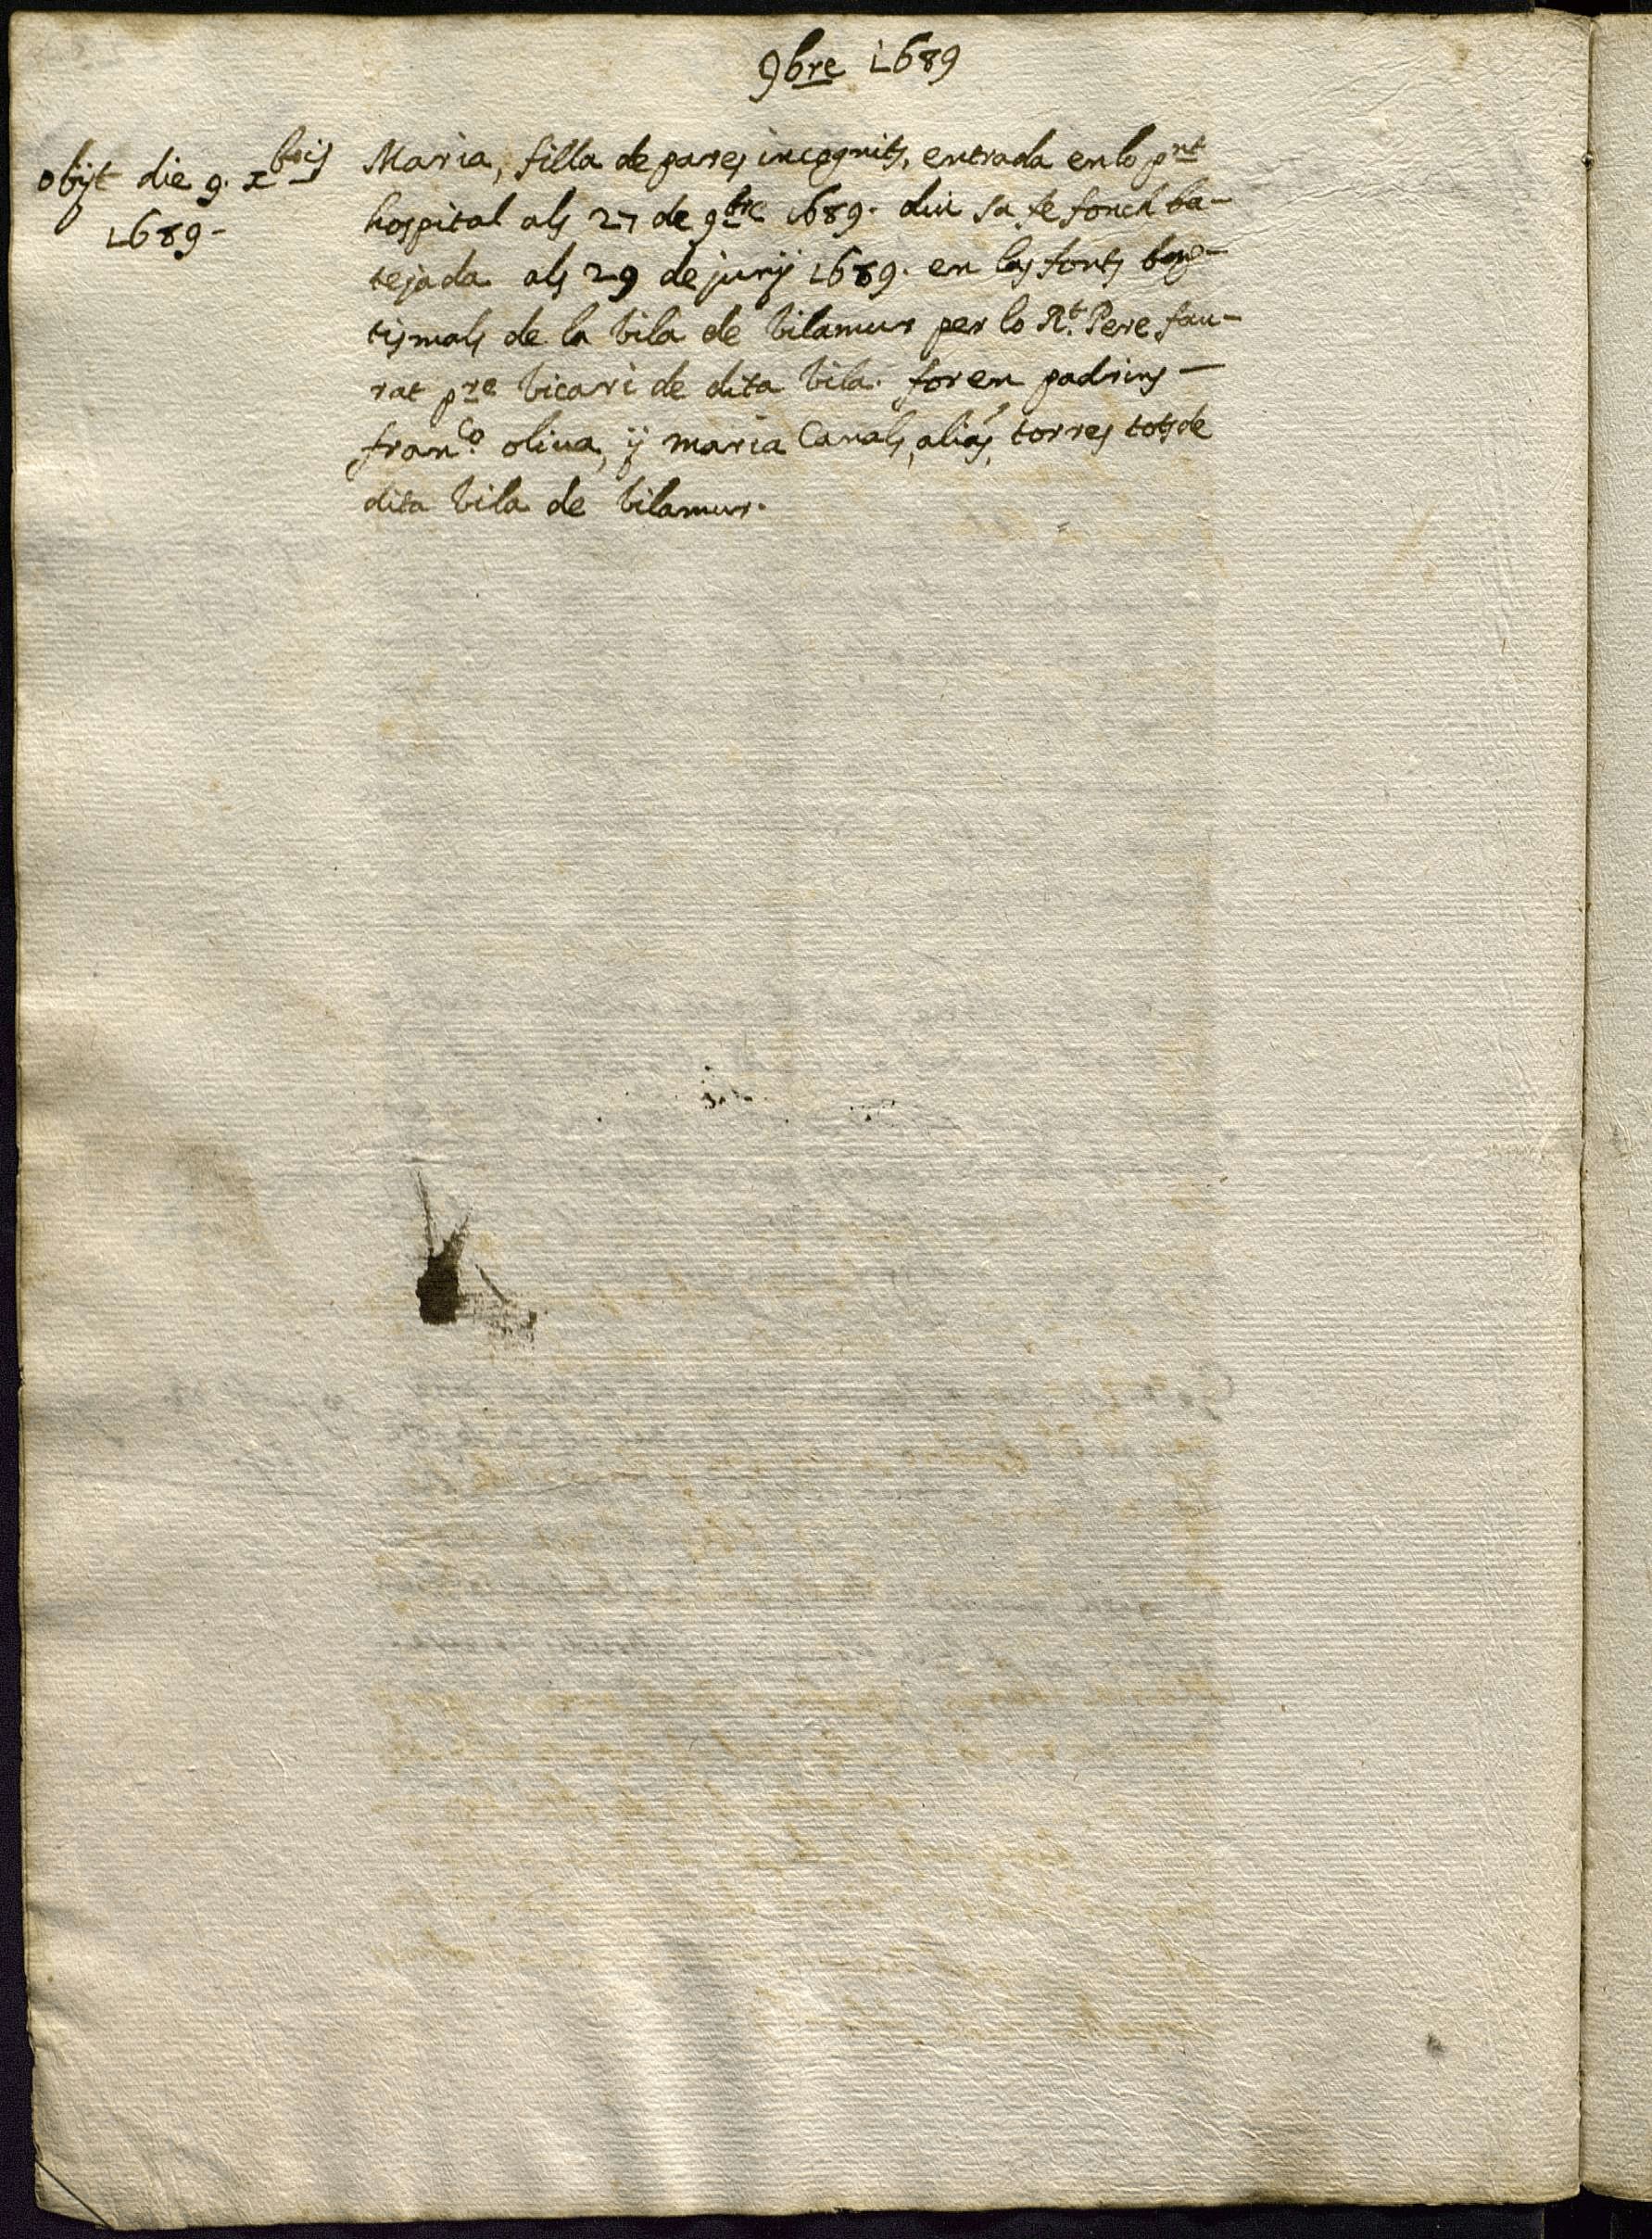 9bre 1689
obijt die 9. xbris
1689-
Maria, filla de pares incognits, entrada en lo pnt
hospital als 27 de 9bre 1689. diu sa fe fonch ba-
tejada als 29 de junij 1689. en las fonts bap-
tismals de la vila de vilamur per lo Rt. Pere fau-
rat pre vicari de dita vila. foren padrins -
franco. oliva, ÿ maria Canals, alias, torres tots de
dita vila de vilamur.